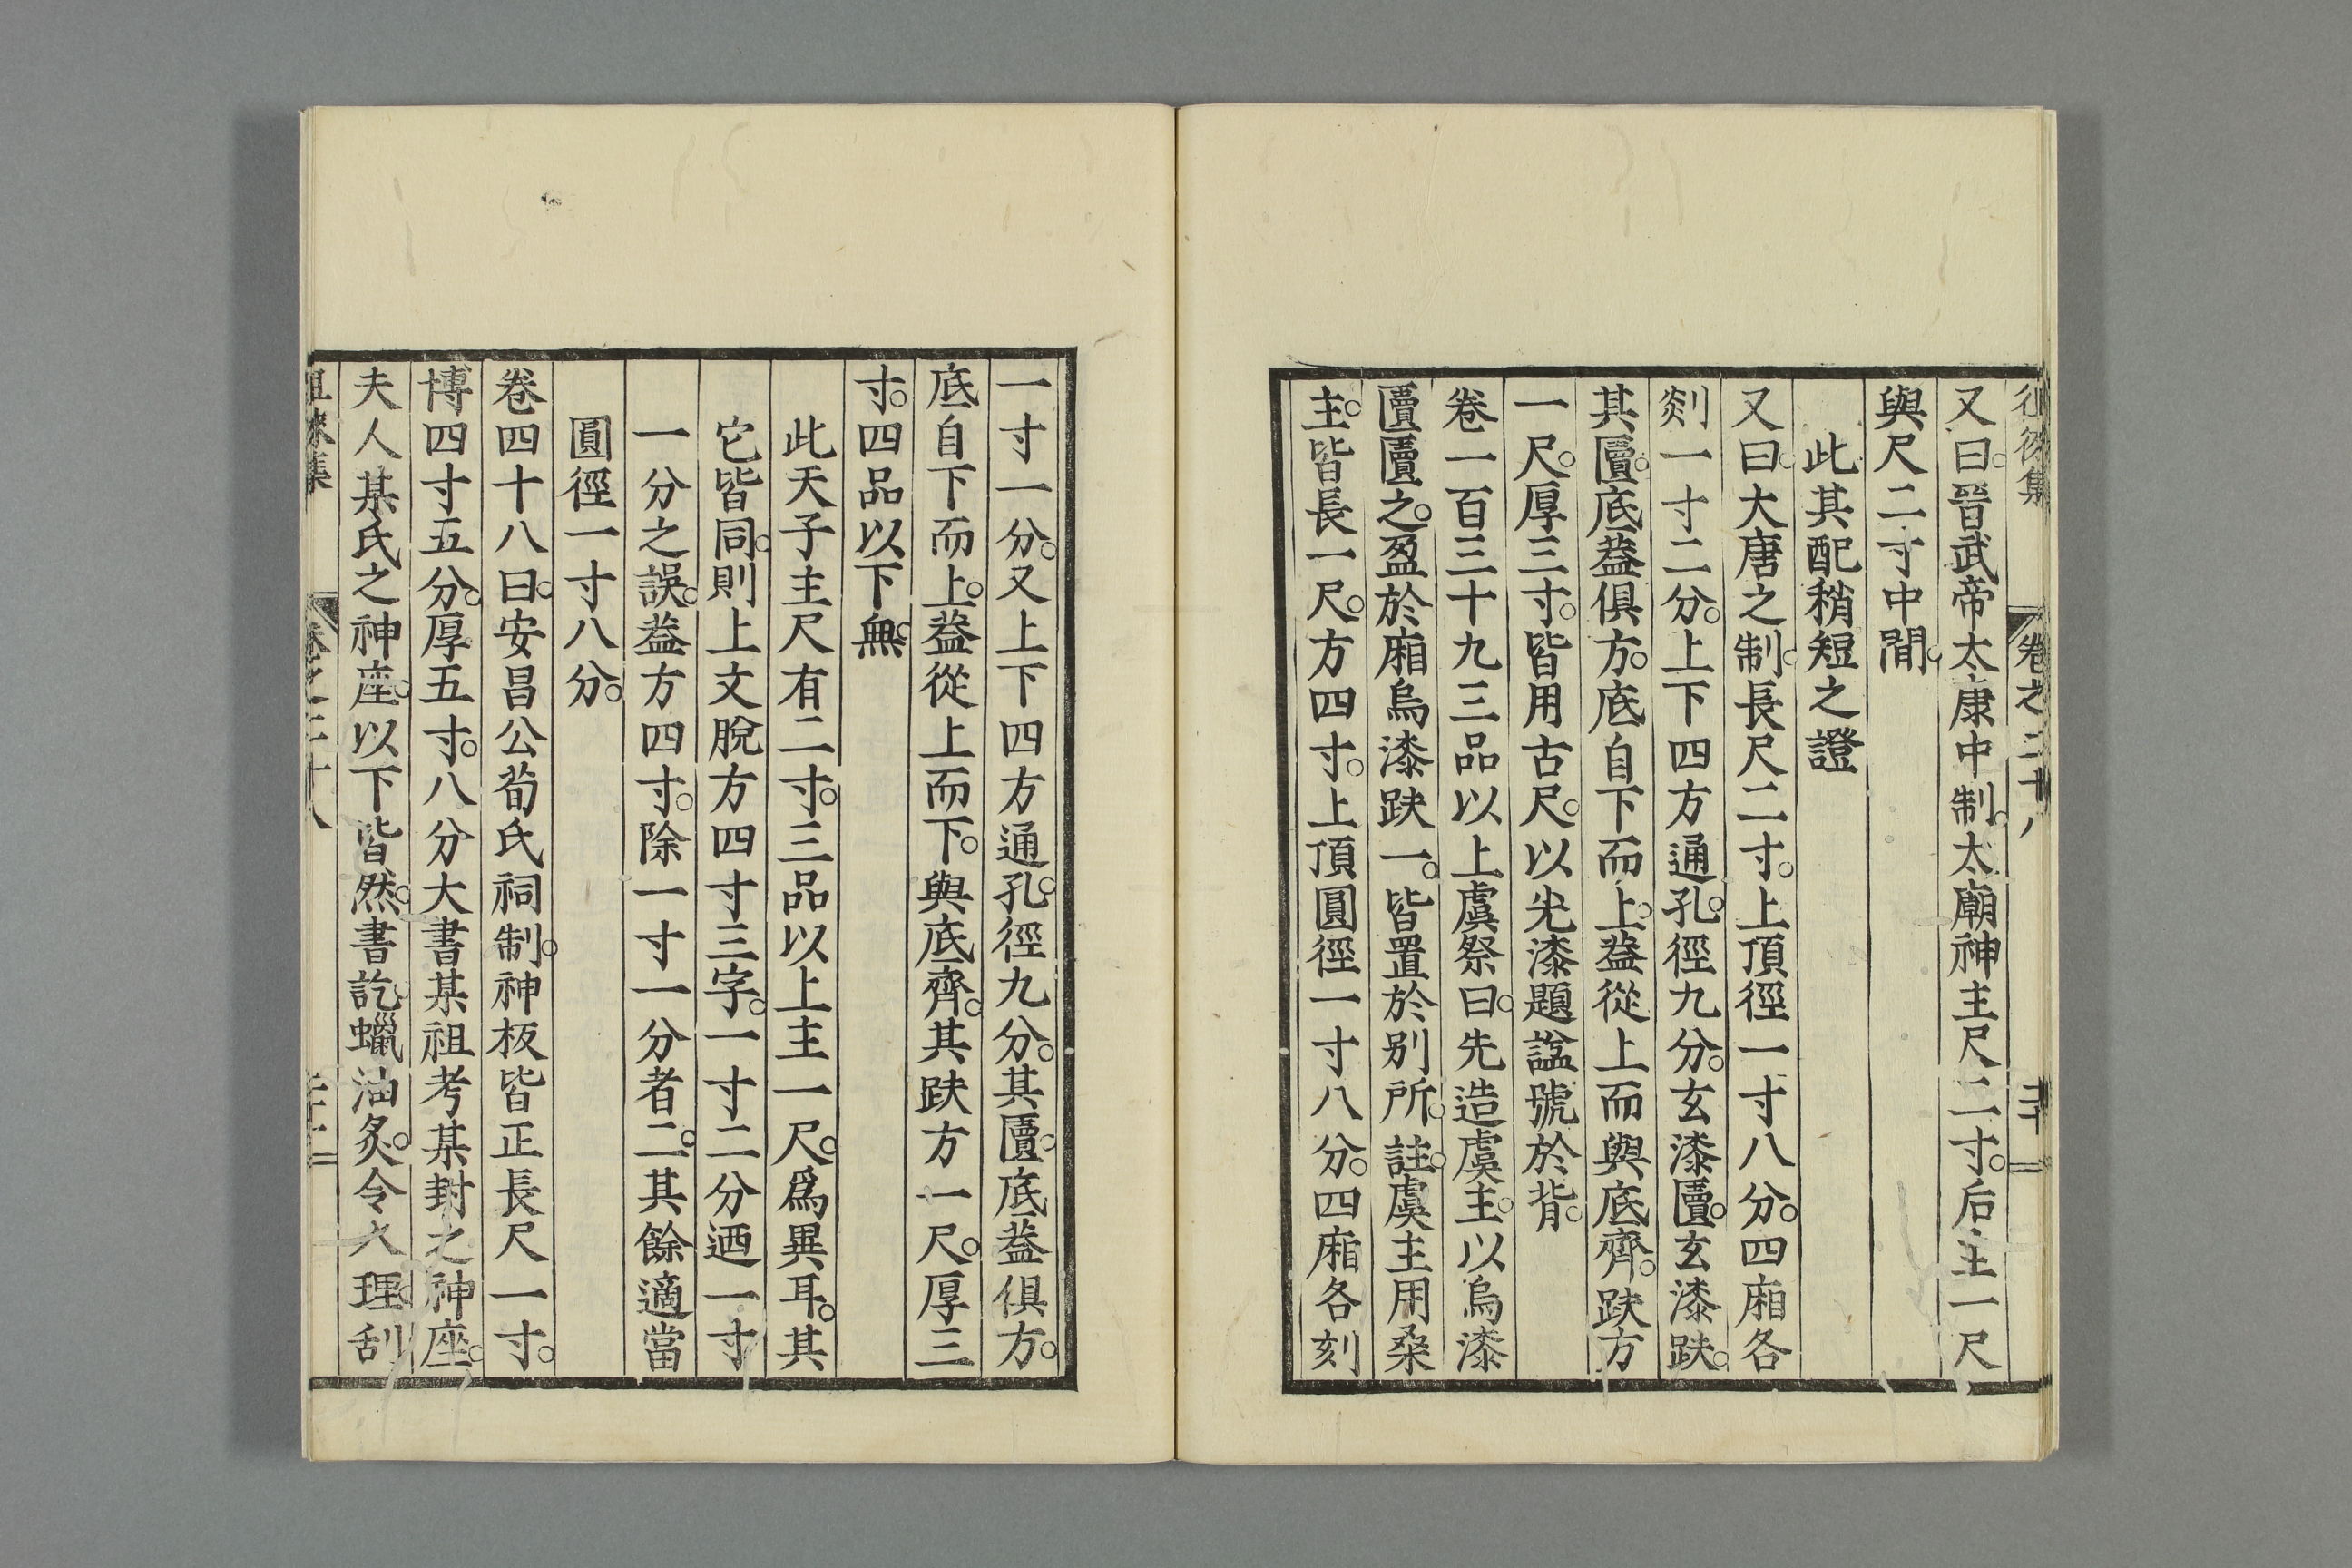 徂徠集 卷之二十八
又曰。晉武帝太康中制。太廟神主尺二寸。后主一尺
與尺二寸中間。
此其配稍短之證
又曰。大唐之制。長尺二寸。上頂徑一寸八分。四廂各
剡一寸二分。上下四方通孔。徑九分。玄漆匵。玄漆趺。
其匵。底葢俱方。底自下而上。葢從上而與底齊。趺方
一尺。厚三寸。皆用古尺。以光漆題諡號於背。
卷一百三十九三品以上虞祭曰。先造虞主。以烏漆
匵匵之。盈於廂烏漆趺一。皆置於別所。註。虞主用桑
主。皆長一尺。方四寸。上頂圓徑一寸八分。四廂各刻
一寸一分。又上下四方通孔。徑九分。其匵。底葢俱方。
底自下而上。葢從上而下。與底齊。其趺方一尺。厚三
寸。四品以下無。
此天子主尺有二寸。三品以上主一尺。爲異耳。其
它皆同。則上文脫方四寸三字。一寸二分迺一寸
一分之誤。葢方四寸。除一寸一分者二。其餘適當
圓徑一寸八分。
卷四十八曰。安昌公荀氏祠制。神板皆正長尺一寸。
博四寸五分。厚五寸。八分大書某祖考某封之神座。
夫人某氏之神座。以下皆然。書訖。蠟油炙。令入理。刮
徂徠集 卷之二十八